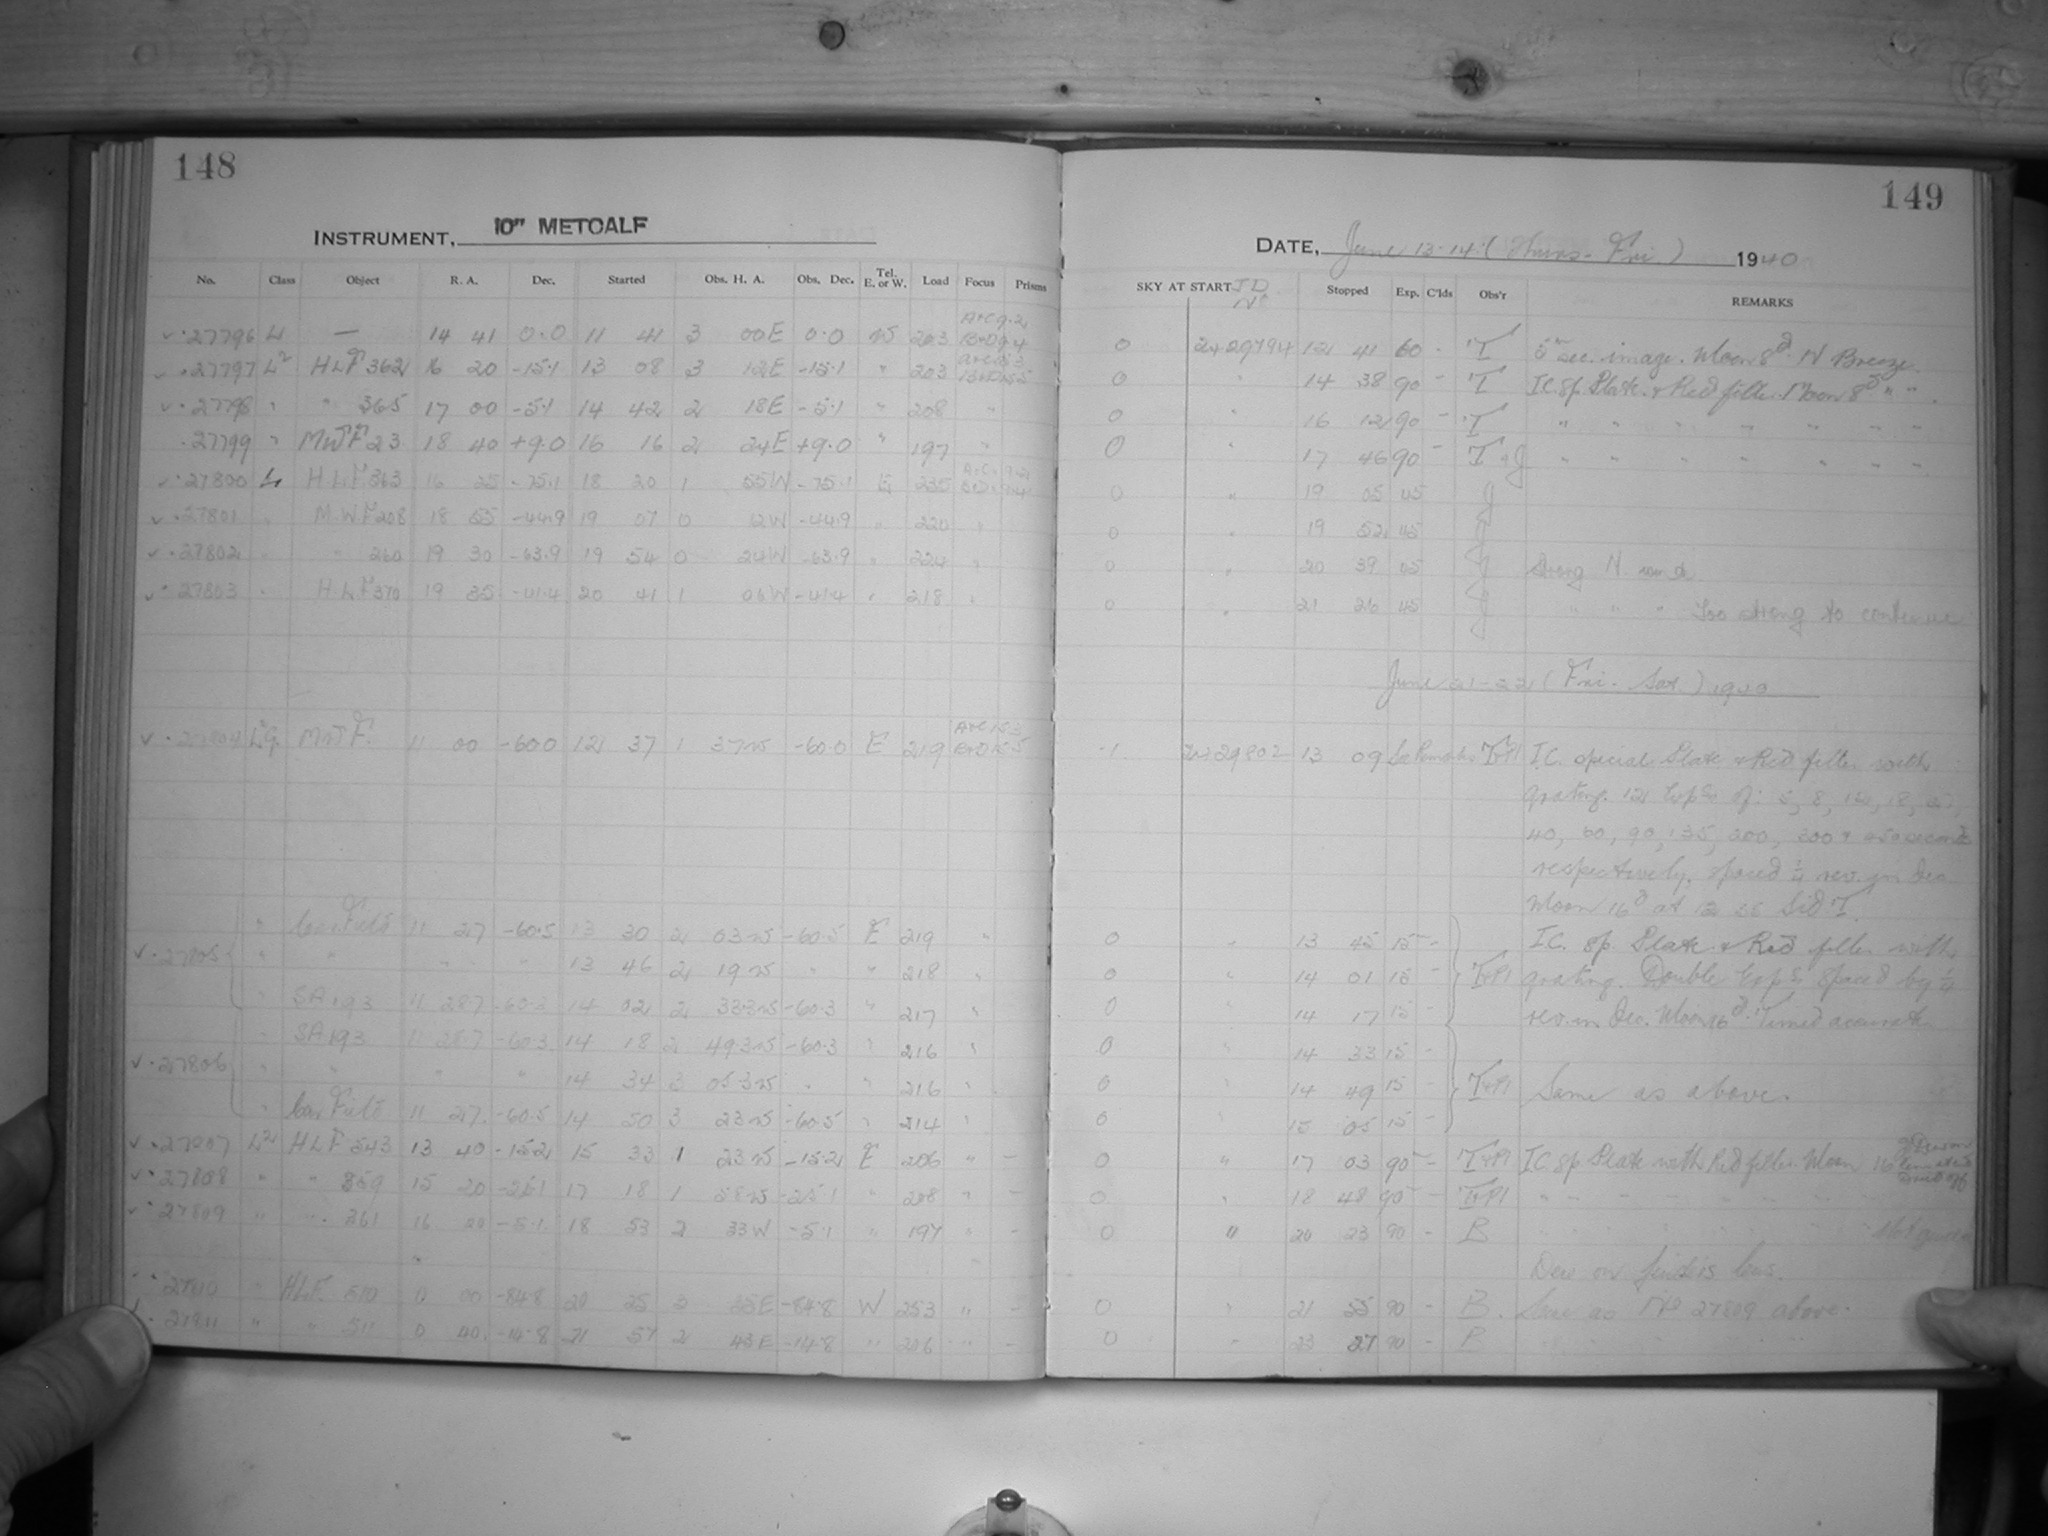 148
INSTRUMENT, 10" METCALF
No. Class Object R. A. Dec. Started Obs. H. A. Obs. Dec. Tel. E. or W. Load Focus Prisms
27796 L — 14 41 0.0 11 41 3 00E 0.0 W 203 A+C 9.2
27797 L2 HLF 362 16 20 -15.1 13 08 3 12E -15.1 " 203
27798 " " 365 17 00 -5.1 14 42 2 18E -5.1 " 208 "
27799 " MWF 23 18 40 +9.0 16 16 2 24E +9.0 " 197 "
27800 L HLF 363 16 25 -75.1 18 20 1 55W -75.1 E 235
27801 M.W.F 208 18 55 -44.9 19 07 0 12W -44.9 " 220 "
27802 " 260 19 30 -63.9 19 54 0 24W -63.9 " 224 "
27803 H.L.F 370 19 35 -41.4 20 41 1 06W -41.4 " 218 "
27804 MWF. 11 00 -60.0 12 37 1 37W -60.0 E 219
" Car. Field 11 27 -60.5 13 30 2 03W -60.5 E 219 "
27805 " " " " 13 46 2 19W " " 218 "
" SA 193 11 28.7 -60.3 14 02 2 33.3W -60.3 " 217 "
" SA 193 11 28.7 -60.3 14 18 2 49.3W -60.3 " 216 "
27806 " " " " 14 34 3 05.3W " " 216 "
" Car Field 11 27 -60.5 14 50 3 23W -60.5 " 214 "
27807 L2 HLF 343 13 40 -15.2 15 33 1 23W -15.2 E 206 " -
27808 " " 359 15 20 -25.1 17 18 1 58W -25.1 " 208 " -
27809 " " 361 16 20 -5.1 18 53 2 33W -5.1 " 197 " -
27810 " HLF. 510 0 00 -84.8 20 25 3 35E -84.8 W 253 " -
27811 " " 511 0 40 -14.8 21 57 2 43E -14.8 " 206 " -
149
DATE, June 13-14 (Thurs - Fri.) 1940
SKY AT START JD No Stopped Exp. C'lds Obs'r REMARKS
0 2429794 12 41 60 - T 5 sec. image. Moon 8d. N Breeze.
0 " 14 38 90 - T IC. sp. Plate + Red filter. Moon 8d " "
0 " 16 12 90 - T " " " " " " "
0 " 17 46 90 - T + J " " " " " " "
0 " 19 05 45 J
0 " 19 52 45 J
0 " 20 39 45 J Strong N. wind
0 " 21 26 45 J " " " Too strong to continue
June 21-22 (Fri - Sat.) 1940
-1 2429802 13 09 See Remarks T+Pl I.C. special Plate + Red filter with
grating. 12 Exps of: 5, 8, 12, 18, 27,
40, 60, 90, 135, 200, 300 + 450 seconds
respectively, spaced 1/4 rev. in Dec
Moon 16d at 12 55 Sid T.
0 " 13 45 15 - IC. sp. Plate + Red filter with
0 " 14 01 15 - T+Pl grating. Double Exps spaced by 1/4
0 " 14 17 15 - rev. in Dec. Moon 16d. Timed accurately
0 " 14 33 15 -
0 " 14 49 15 - T+Pl Same as above.
0 " 15 05 15 -
0 " 17 03 90 - T+Pl IC sp Plate with Red filter Moon 16d
0 " 18 48 90 - T+Pl " "
0 " 20 23 90 - B
Dew on finder's lens.
0 " 21 55 90 - B. Same as No 27809 above.
0 " 23 27 90 - B